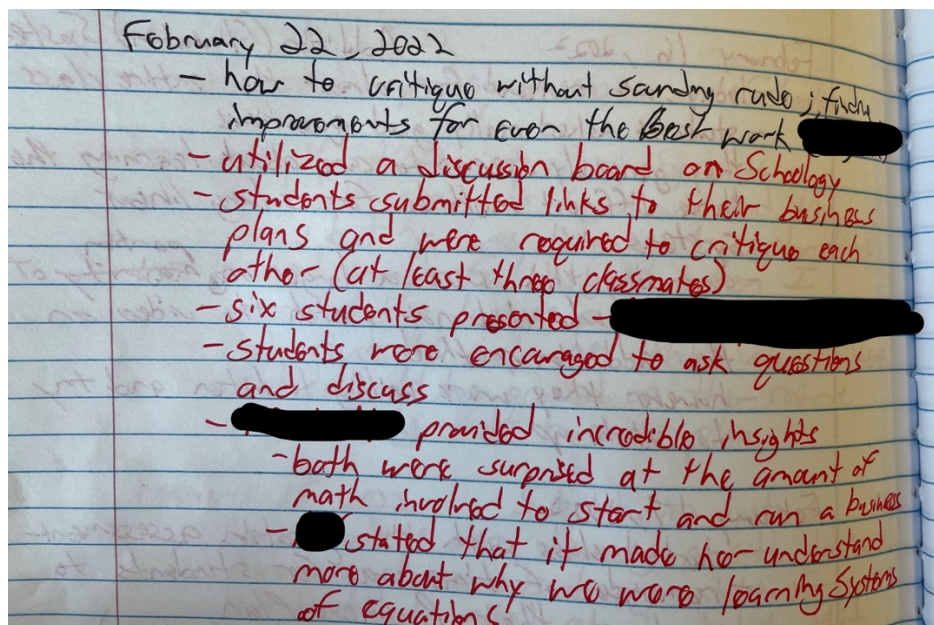 February 22, 2022
- how to critique without sounding rude; finding
improvements for even the best work
- utilized a discussion board on Schoology
- students submitted links to their business
plans and were required to critique each
other (at least three classmates)
- six students presented -
- students were encouraged to ask questions
and discuss
- provided incredible insights
- both were surprised at the amount of
math involved to start and run a business
- stated that it made her understand
more about why we were learning Systems
of equations